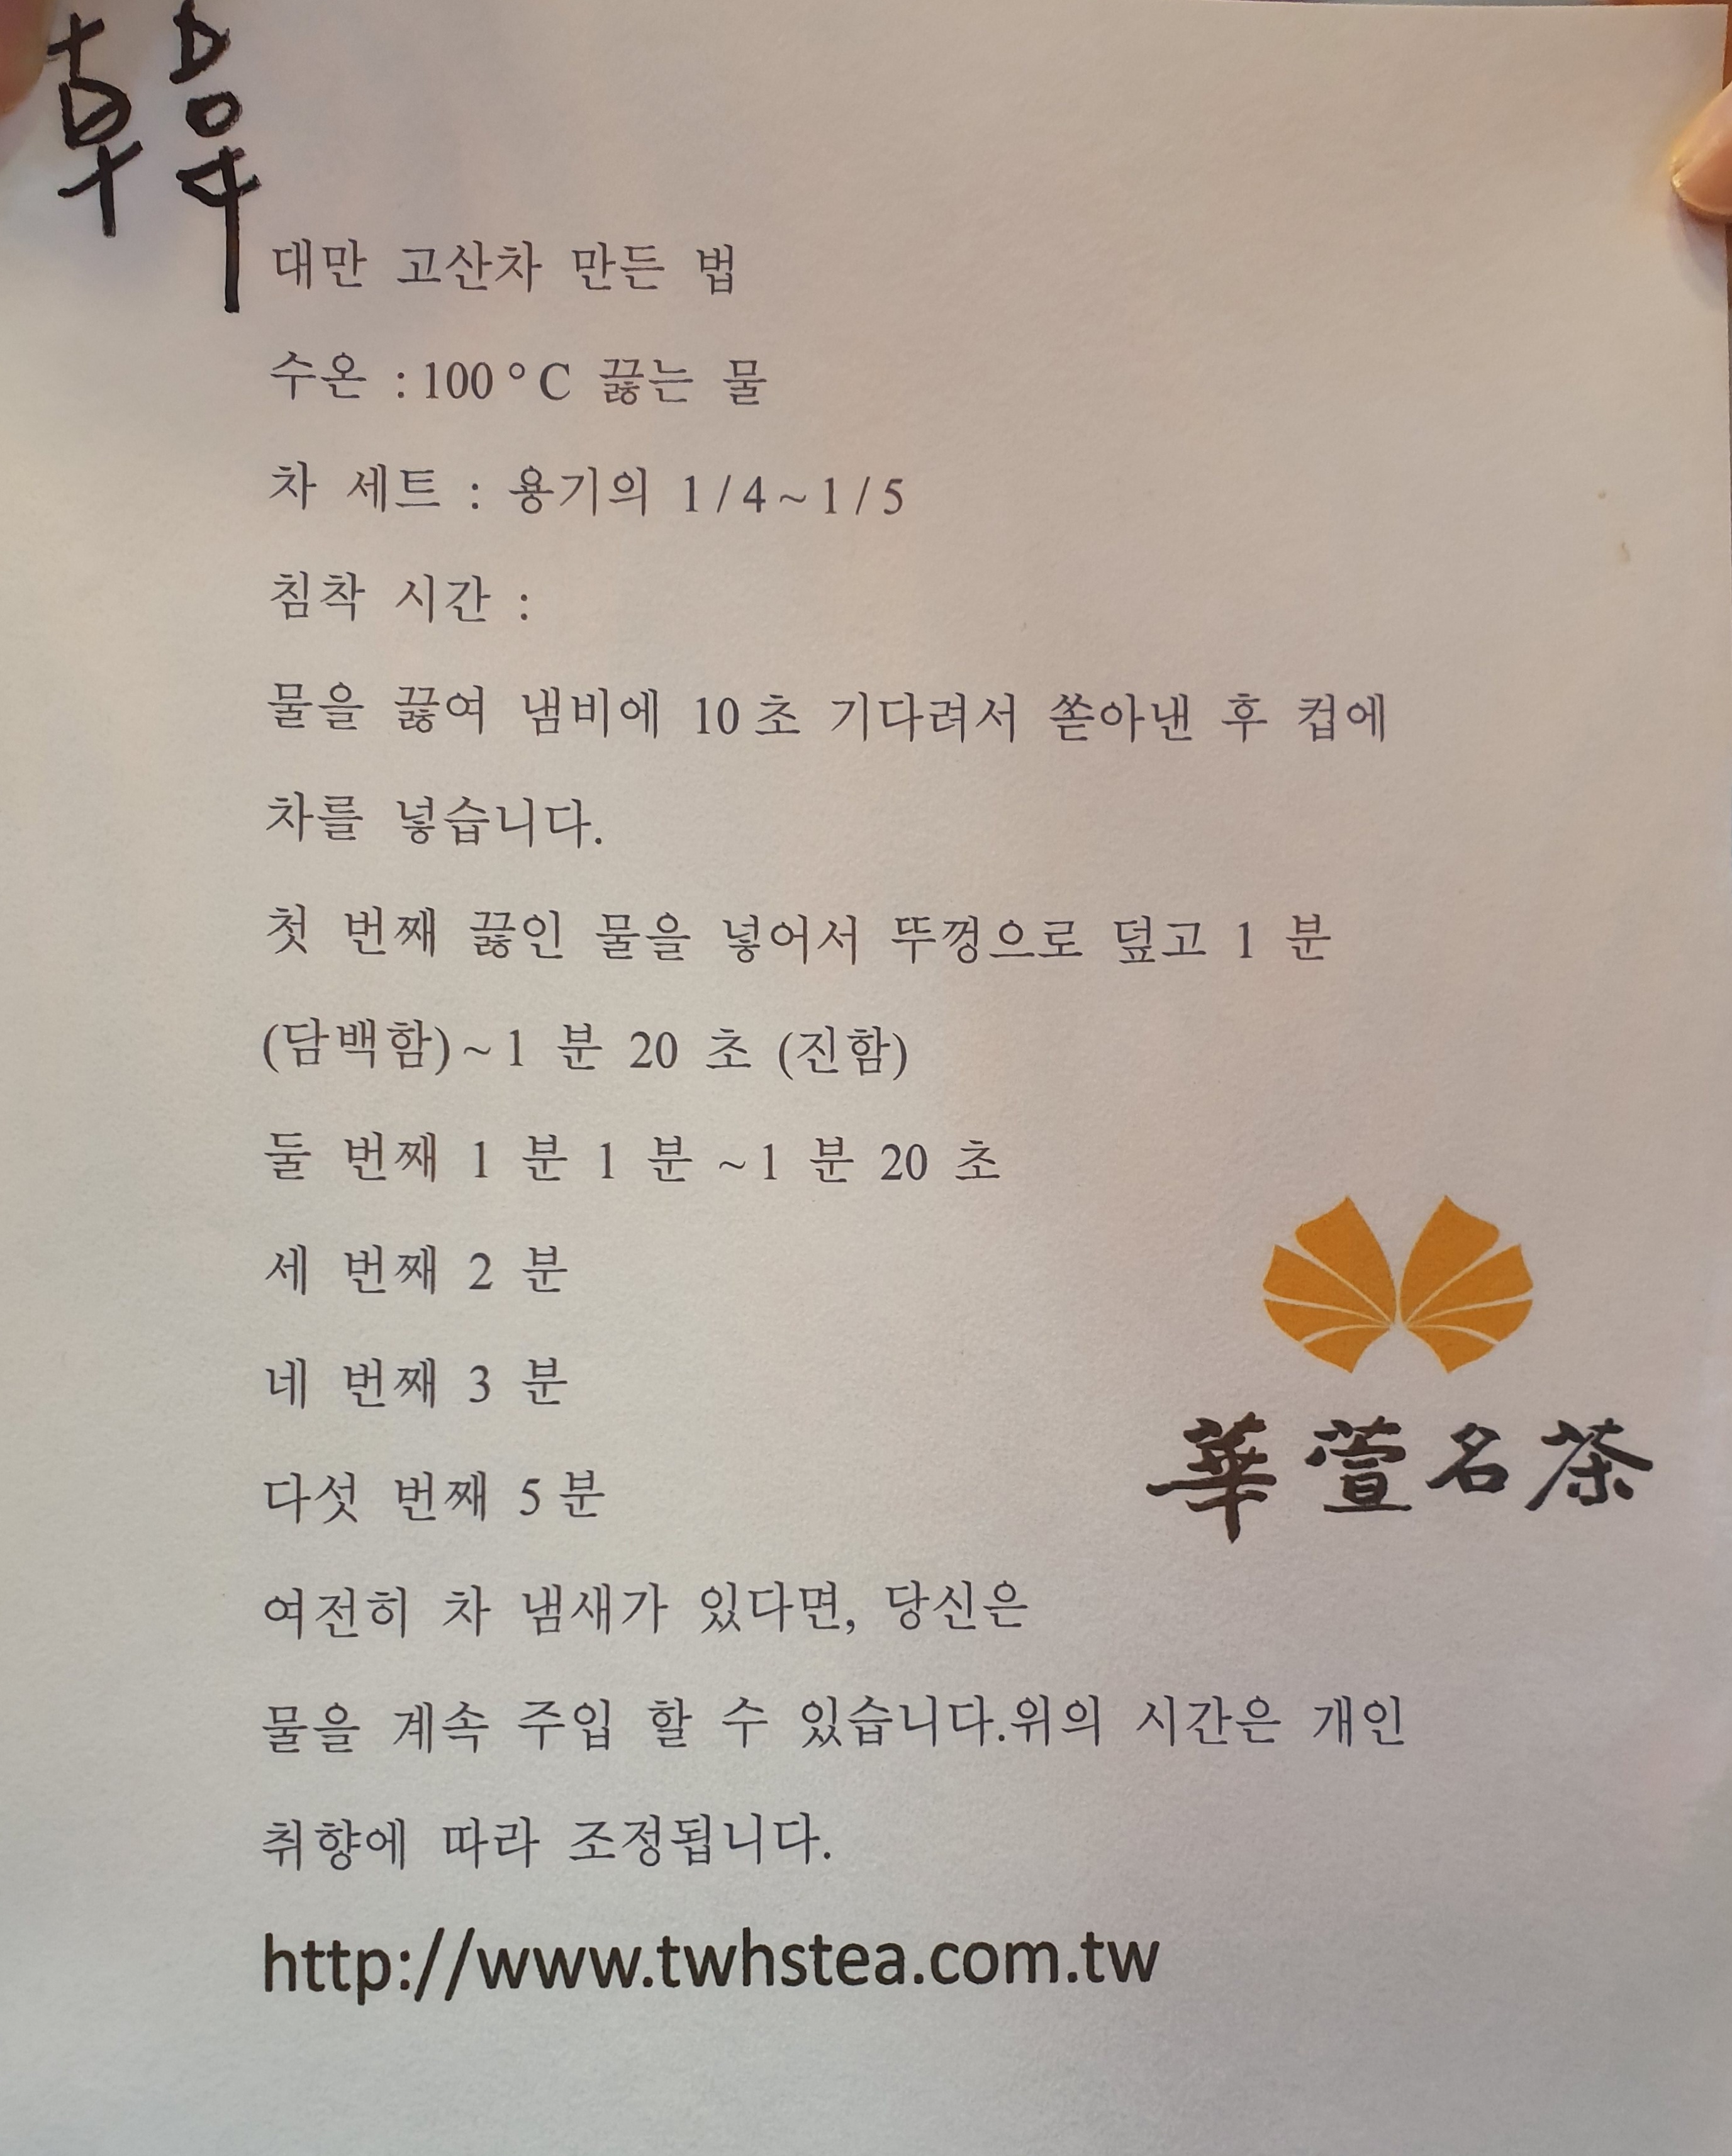 韓
대만 고산차 만든 법
수온 : 100°C 끓는 물
차 세트 : 용기의 1/4~1/5
침착 시간 :
물을 끓여 냄비에 10초 기다려서 쏟아낸 후 컵에
차를 넣습니다.
첫 번째 끓인 물을 넣어서 뚜껑으로 덮고 1 분
(담백함)~1 분 20 초 (진함)
둘 번째 1 분 1 분 ~1 분 20 초
세 번째 2 분
네 번째 3 분
다섯 번째 5분
華萱名茶
여전히 차 냄새가 있다면, 당신은
물을 계속 주입 할 수 있습니다.위의 시간은 개인
취향에 따라 조정됩니다.
http://www.twhstea.com.tw